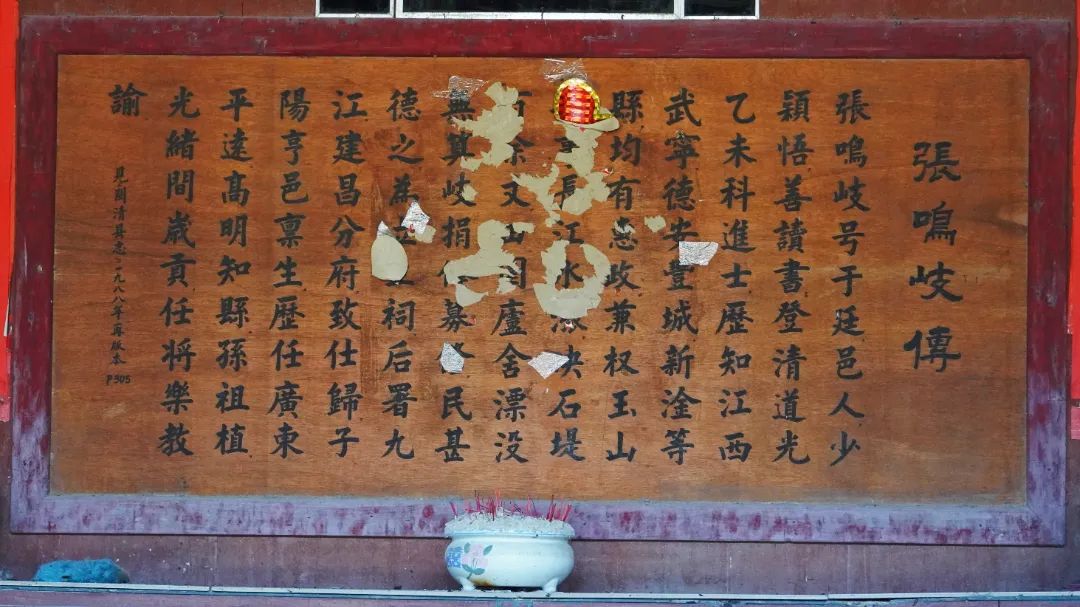 張鳴岐傳
張鳴岐号于廷邑人少
穎悟善讀書登清道光
乙未科進士歷知江西
武寧德安豐城新淦等
縣均有惠政兼权玉山
長江水决石堤
又廬舍漂没
無算岐捐募民甚
德之為祠后署九
江建昌分府致仕歸子
陽亨邑禀生歷任廣東
平逺高明知縣孫祖植
光緒間歲貢任将樂教
諭
見閩清县志一九八八年再版本 P305